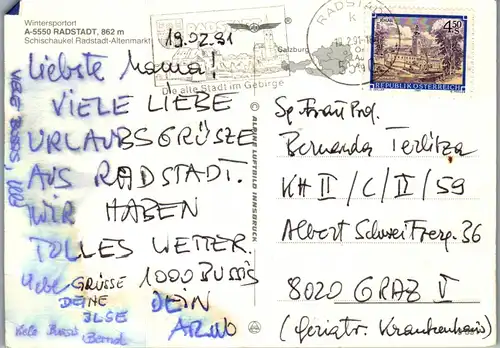 Wintersportort
A-5550 RADSTADT, 862 m
Schischaukel Radstadt-Altenmarkt
19.02.91
Die alte Stadt im Gebirge
Salzburg
RADSTADT
4.50
REPUBLIK ÖSTERREICH
Liebste Mama!
VIELE LIEBE
URLAUBSGRÜSZE
AUS RADSTADT.
WIR HABEN
TOLLES WETTER.
Liebe GRÜSSE 1000 BUSSIS
DEINE DEIN
ILSE ARNO
Viele Bussis
Bernd
VIELE BUSSIS,
© ALPINE LUFTBILD INNSBRUCK
Sg. Frau Prof.
Bernarda Terlitza
KH II/C/II/59
Albert Schweitzerg. 36
8020 GRAZ V
(Geriatr. Krankenhaus)